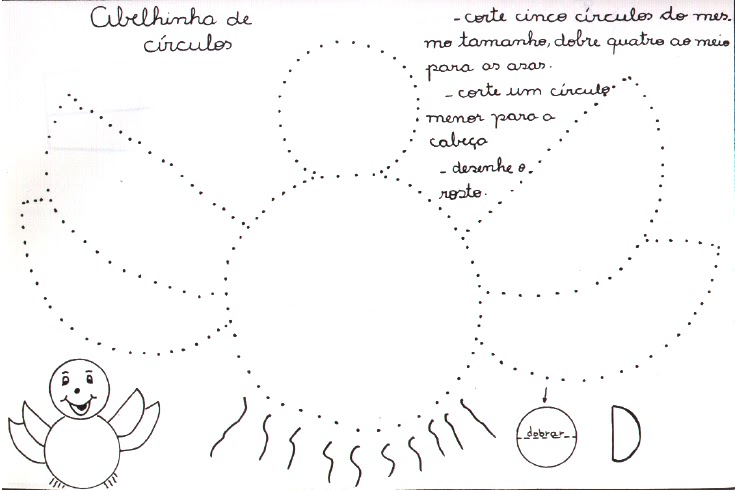 Abelhinha de
círculos
- corte cinco círculos do mes-
mo tamanho, dobre quatro ao meio
para as asas.
- corte um círculo
menor para a
cabeça
- desenhe o
rosto.
dobrar